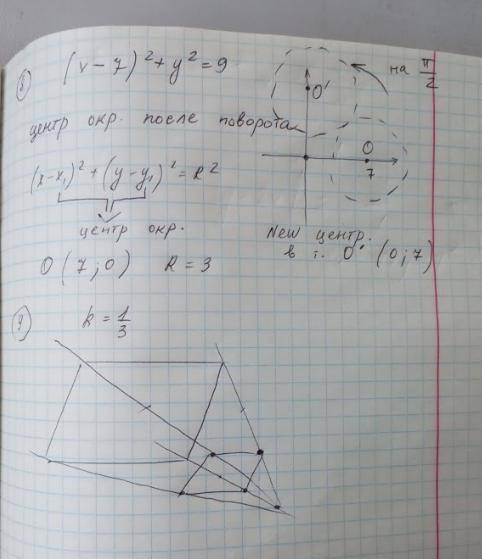 8) (x-7)²+y²=9
на π/2
центр окр. после поворота
O'
(x-x₁)²+(y-y₁)²=R²
O
7
центр окр.
O(7;0) R=3
New центр.
в т. O' (0;7)
9) k=1/3